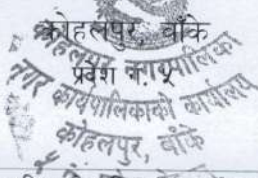 कोहलपुर, बाँके
प्रदेश नं. ५
कोहलपुर नगरपालिका
नगर कार्यपालिकाको कार्यालय
कोहलपुर, बाँके